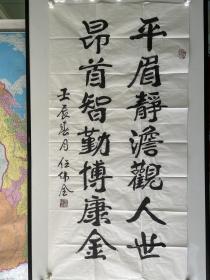 平眉靜澹觀人世
昂首智勤博康金
壬辰春月 任伟金